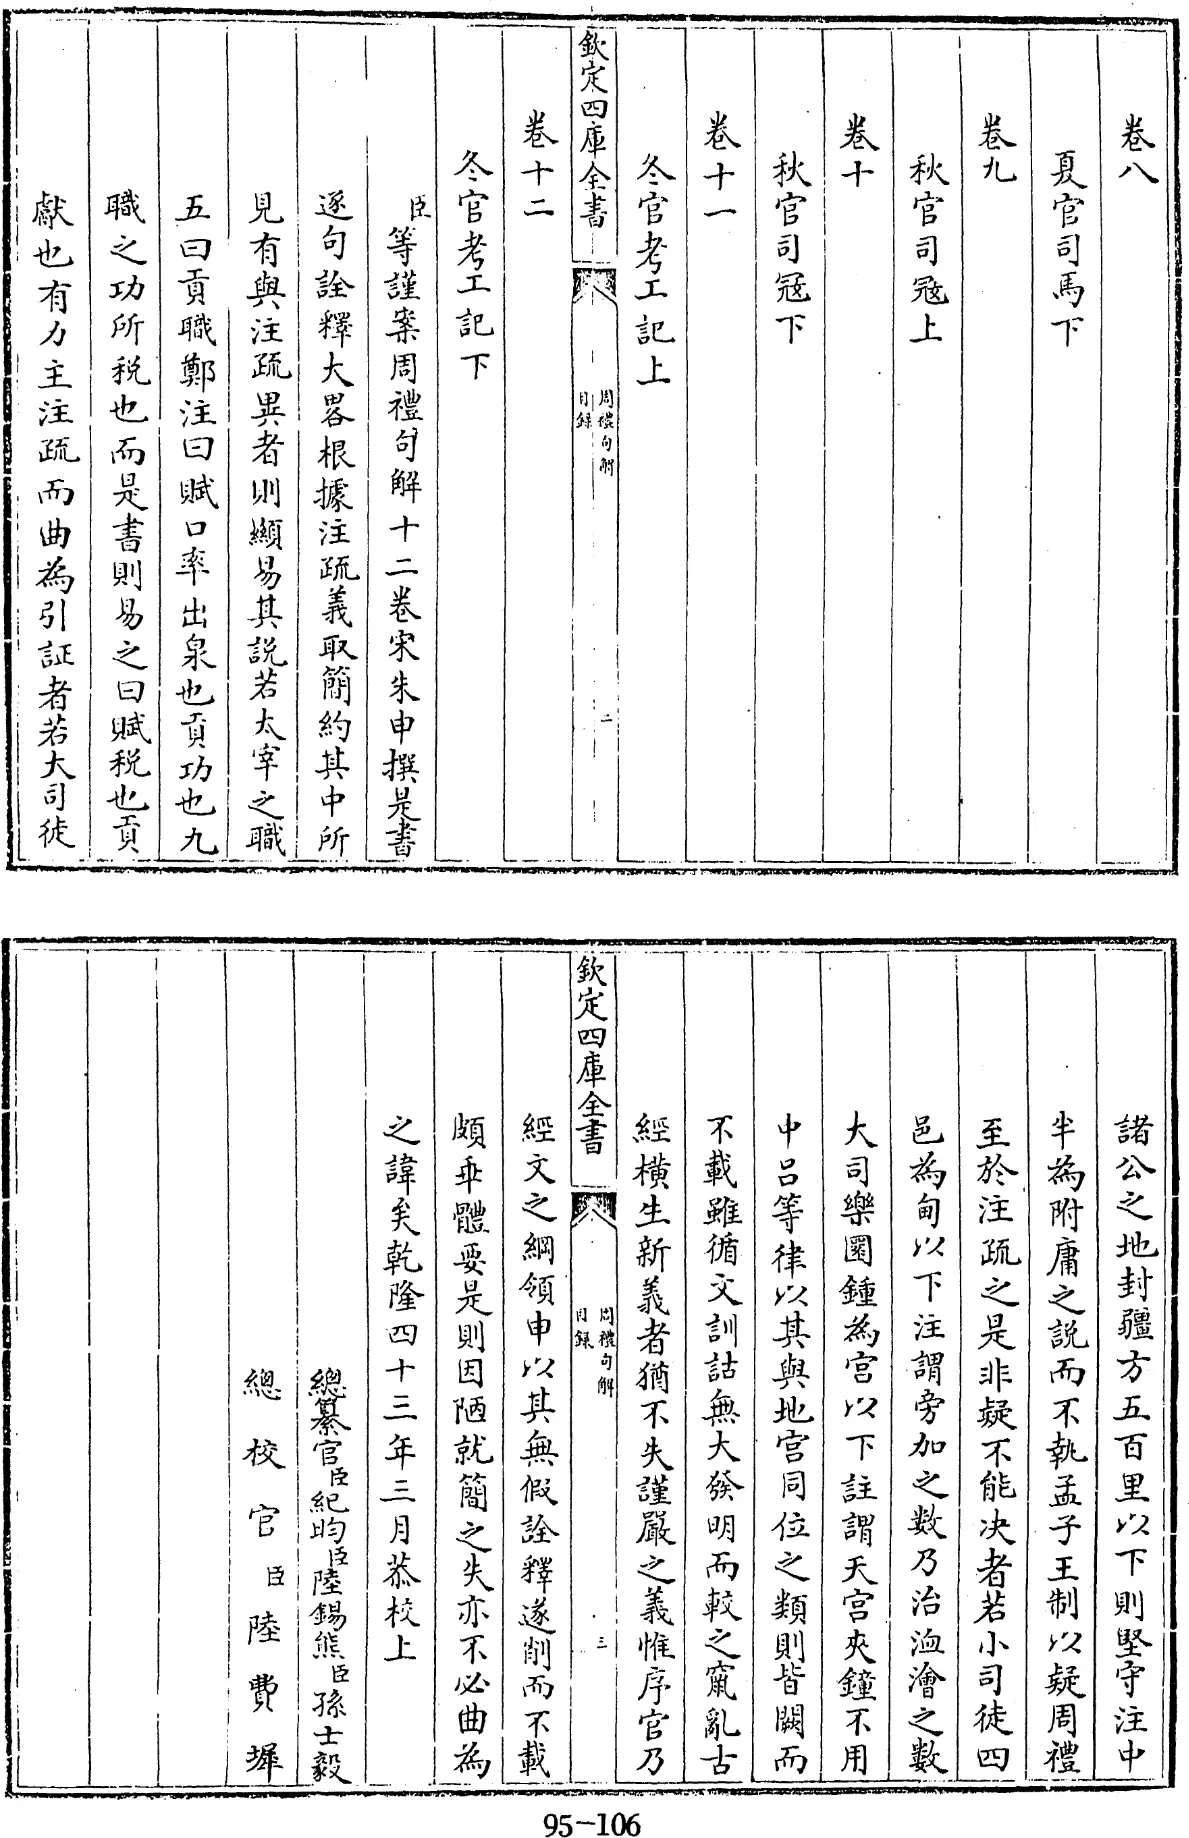 卷八
夏官司馬下
卷九
秋官司宼上
卷十
秋官司宼下
卷十一
冬官考工記上
欽定四庫全書
周禮句解
目錄
二
卷十二
冬官考工記下
臣等謹案周禮句解十二卷宋朱申撰是書
逐句詮釋大畧根據注疏義取簡約其中所
見有與注疏異者則纈易其説若太宰之職
五曰貢職鄭注曰賦口率出泉也貢功也九
職之功所税也而是書則易之曰賦税也貢
獻也有力主注疏而曲為引証者若大司徒
諸公之地封疆方五百里以下則堅守注中
半為附庸之說而不執孟子王制以疑周禮
至於注疏之是非疑不能決者若小司徒四
邑為甸以下注謂旁加之數乃治洫澮之數
大司樂圜鍾為宮以下註謂天宮夾鐘不用
中呂等律以其與地宮同位之類則皆闕而
不載雖循文訓詁無大發明而較之竄亂古
經橫生新義者猶不失謹嚴之義惟序官乃
欽定四庫全書
周禮句解
目錄
三
經文之綱領申以其無假詮釋遂削而不載
頗乖體要是則因陋就簡之失亦不必曲為
之諱矣乾隆四十三年三月恭校上
總纂官臣紀昀臣陸錫熊臣孫士毅
總校官臣陸費墀
95-106